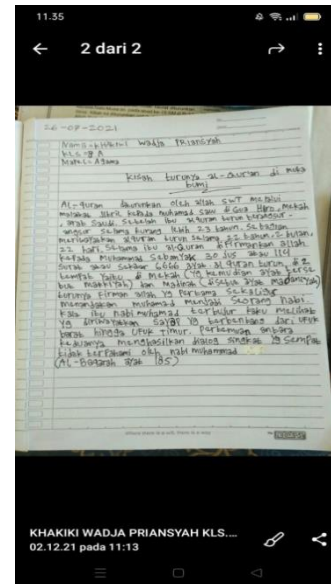 11.35
2 dari 2
26-07-2021
Nama = Khakiki Wadja PRiansyah
KLS = 8 A
Mapel = Agama
kisah turunya al-Quran di muka
bumi
AL-quran diturunkan oleh allah SWT melalui
malaikat Jibril kepada muhamad saw di Gua Hiro, Mekah
, arab Saudi. Setelah itu alquran turun berangsur-
angsur selama kurang lebih 23 tahun. Sebagian
meriwayatkan alquran turun selama 22 tahun, 2 bulan,
22 hari. Selama itu alquran difirmankan allah
kepada Muhamad Sebanyak 30 Jus atau 114
Surat atau sekitar 6666 ayat. alquran turun di 2
tempat yaitu di mekah (yg kemudian ayat terse
but makkiyah) dan madinah (disebut ayat madaniyah)
turunya firman allah yg pertama sekaligus
menandakan muhamad menjadi seorang nabi.
kala itu nabi muhamad terbujur kaku melihat
yg diriwayatkan sayap yg terbentang dari ufuk
barat hingga ufuk timur. Pertemuan antara
keduanya menghasilkan dialog singkat yg sempat
tidak terpahami oleh nabi muhammad
(AL-Baqarah ayat 185)
KHAKIKI WADJA PRIANSYAH KLS....
02.12.21 pada 11:13